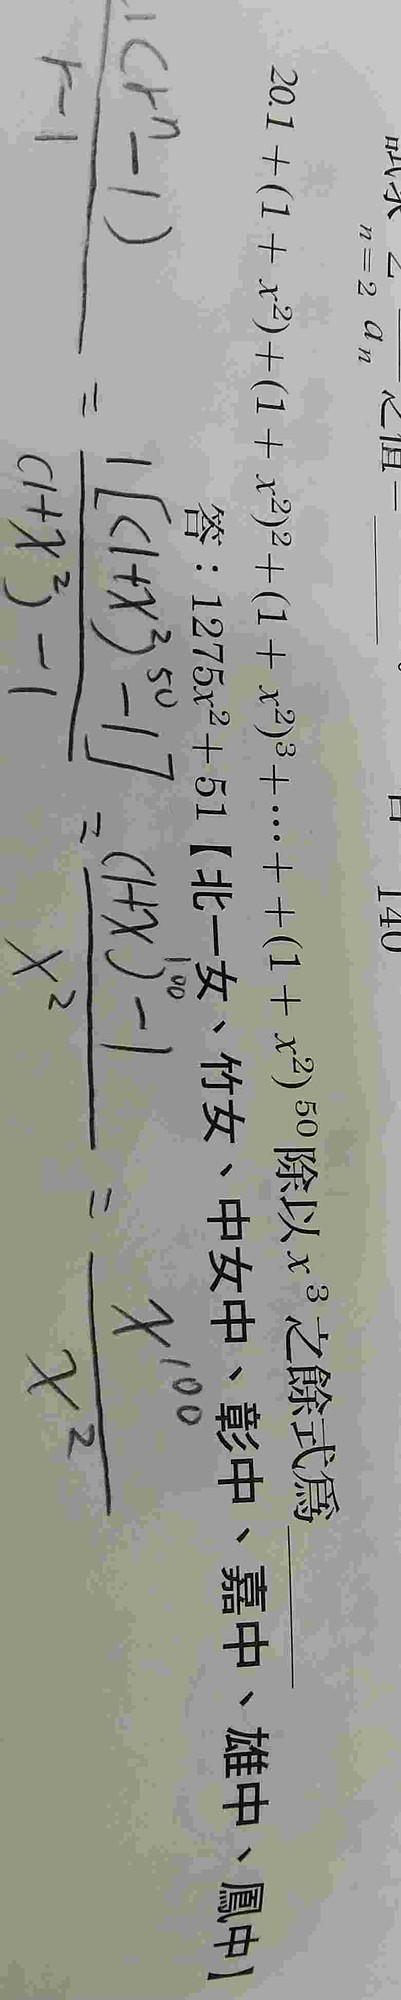 n=2 a_n 之值=
140
20.1+(1+x²)+(1+x²)²+(1+x²)³+⋯++(1+x²)⁵⁰除以x³之餘式為
答：1275x²+51【北一女、竹女、中女中、彰中、嘉中、雄中、鳳中】
1(rⁿ-1)/r-1 = 1[(1+x²)⁵⁰-1]/(1+x²)-1 = (1+x)¹⁰⁰-1/x² = x¹⁰⁰/x²